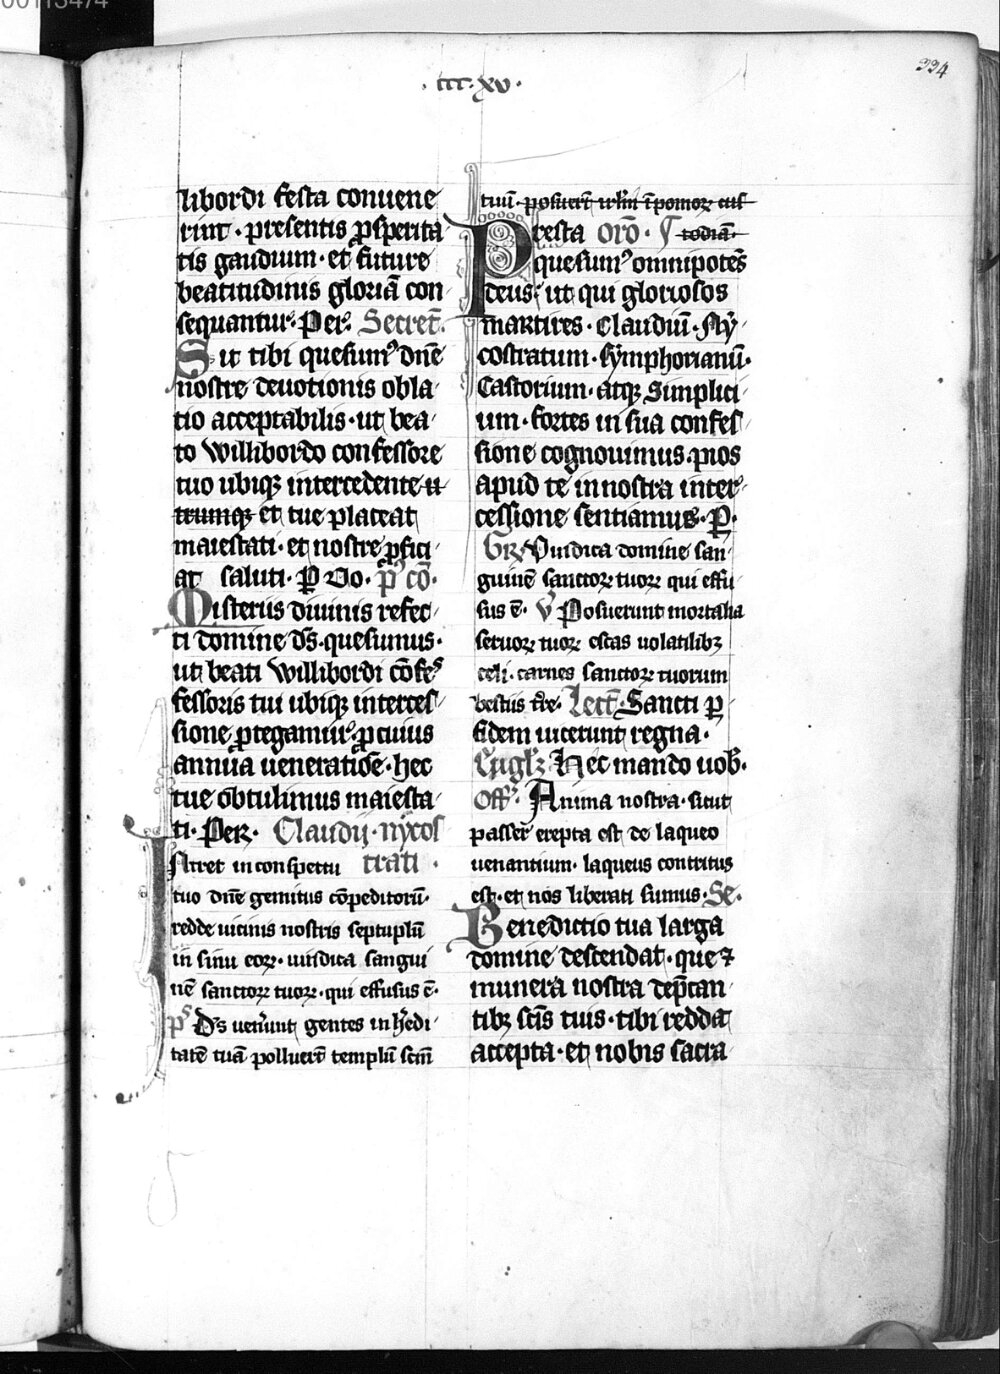 00113474
334
·ccc·xv·
libordi festa conuene
rint· presentis ꝓsperita
tis gaudium· et future
beatitudinis gloriā con
sequantur· Per. Secret̄.
Sit tibi quesum᾽ dn̄e
nostre deuotionis obla
tio acceptabilis· ut bea
to willibordo confessore
tuo ubiqꝫ intercedente u
trumqꝫ et tue placeat
maiestati· et nostre ꝓfici
at saluti· ꝑ Vo· p᾽ cō·
Misteriis diuinis refec
ti domine ds̄ quesumus·
ut beati willibordi cōfes
fessoris tui ubiqꝫ interces
sione ꝓtegamur· ꝓ cuius
annua ueneratiōe· hec
tue obtulimus maiesta
ti· Per· Claudij· nycos
Intret in conspectu trati·
tuo dn̄e gemitus cōpeditorū·
redde uicinis nostris septuplū
in sinu eoꝝ· uindica sangui
nē sanctoꝝ tuoꝝ· qui effusus ē·
ps Ds̄ uener̄unt gentes in h̄edi
tatē tuā polluer̄t templū scm̄
tuū· posuer̄t irl̄m ī pomoꝝ cus
Presta orō· todiā·
quesum᾽ omnipotēs
deus· ut qui gloriosos
martires· Claudiū· Ny
costratum· symphorianū·
Castorium· atqꝫ Simplici
um· fortes in sua confes
sione cognouimus· pios
apud te in nostra inter
cessione sentiamus· ꝑ·
Gr̄ Vindica domine san
guinē sanctoꝝ tuoꝝ qui effu
sus ē· v̄ Posuerunt mortalia
seruoꝝ tuoꝝ escas uolatilibꝫ
celi· carnes sanctoꝝ tuorum
bestiis tr̄e· Lect̄· Sancti ꝑ
fidem uicerunt regna·
Eugl̄ꝫ Hec mando uob̄·
Off̄· Anima nostra· sicut
passer erepta est de laqueo
uenantium· laqueus contritus
est· et nos liberati sumus· Se·
Benedictio tua larga
domine descendat· que ⁊
munera nostra dep̄can
tibꝫ scīs tuis· tibi reddat
accepta· et nobis sacra